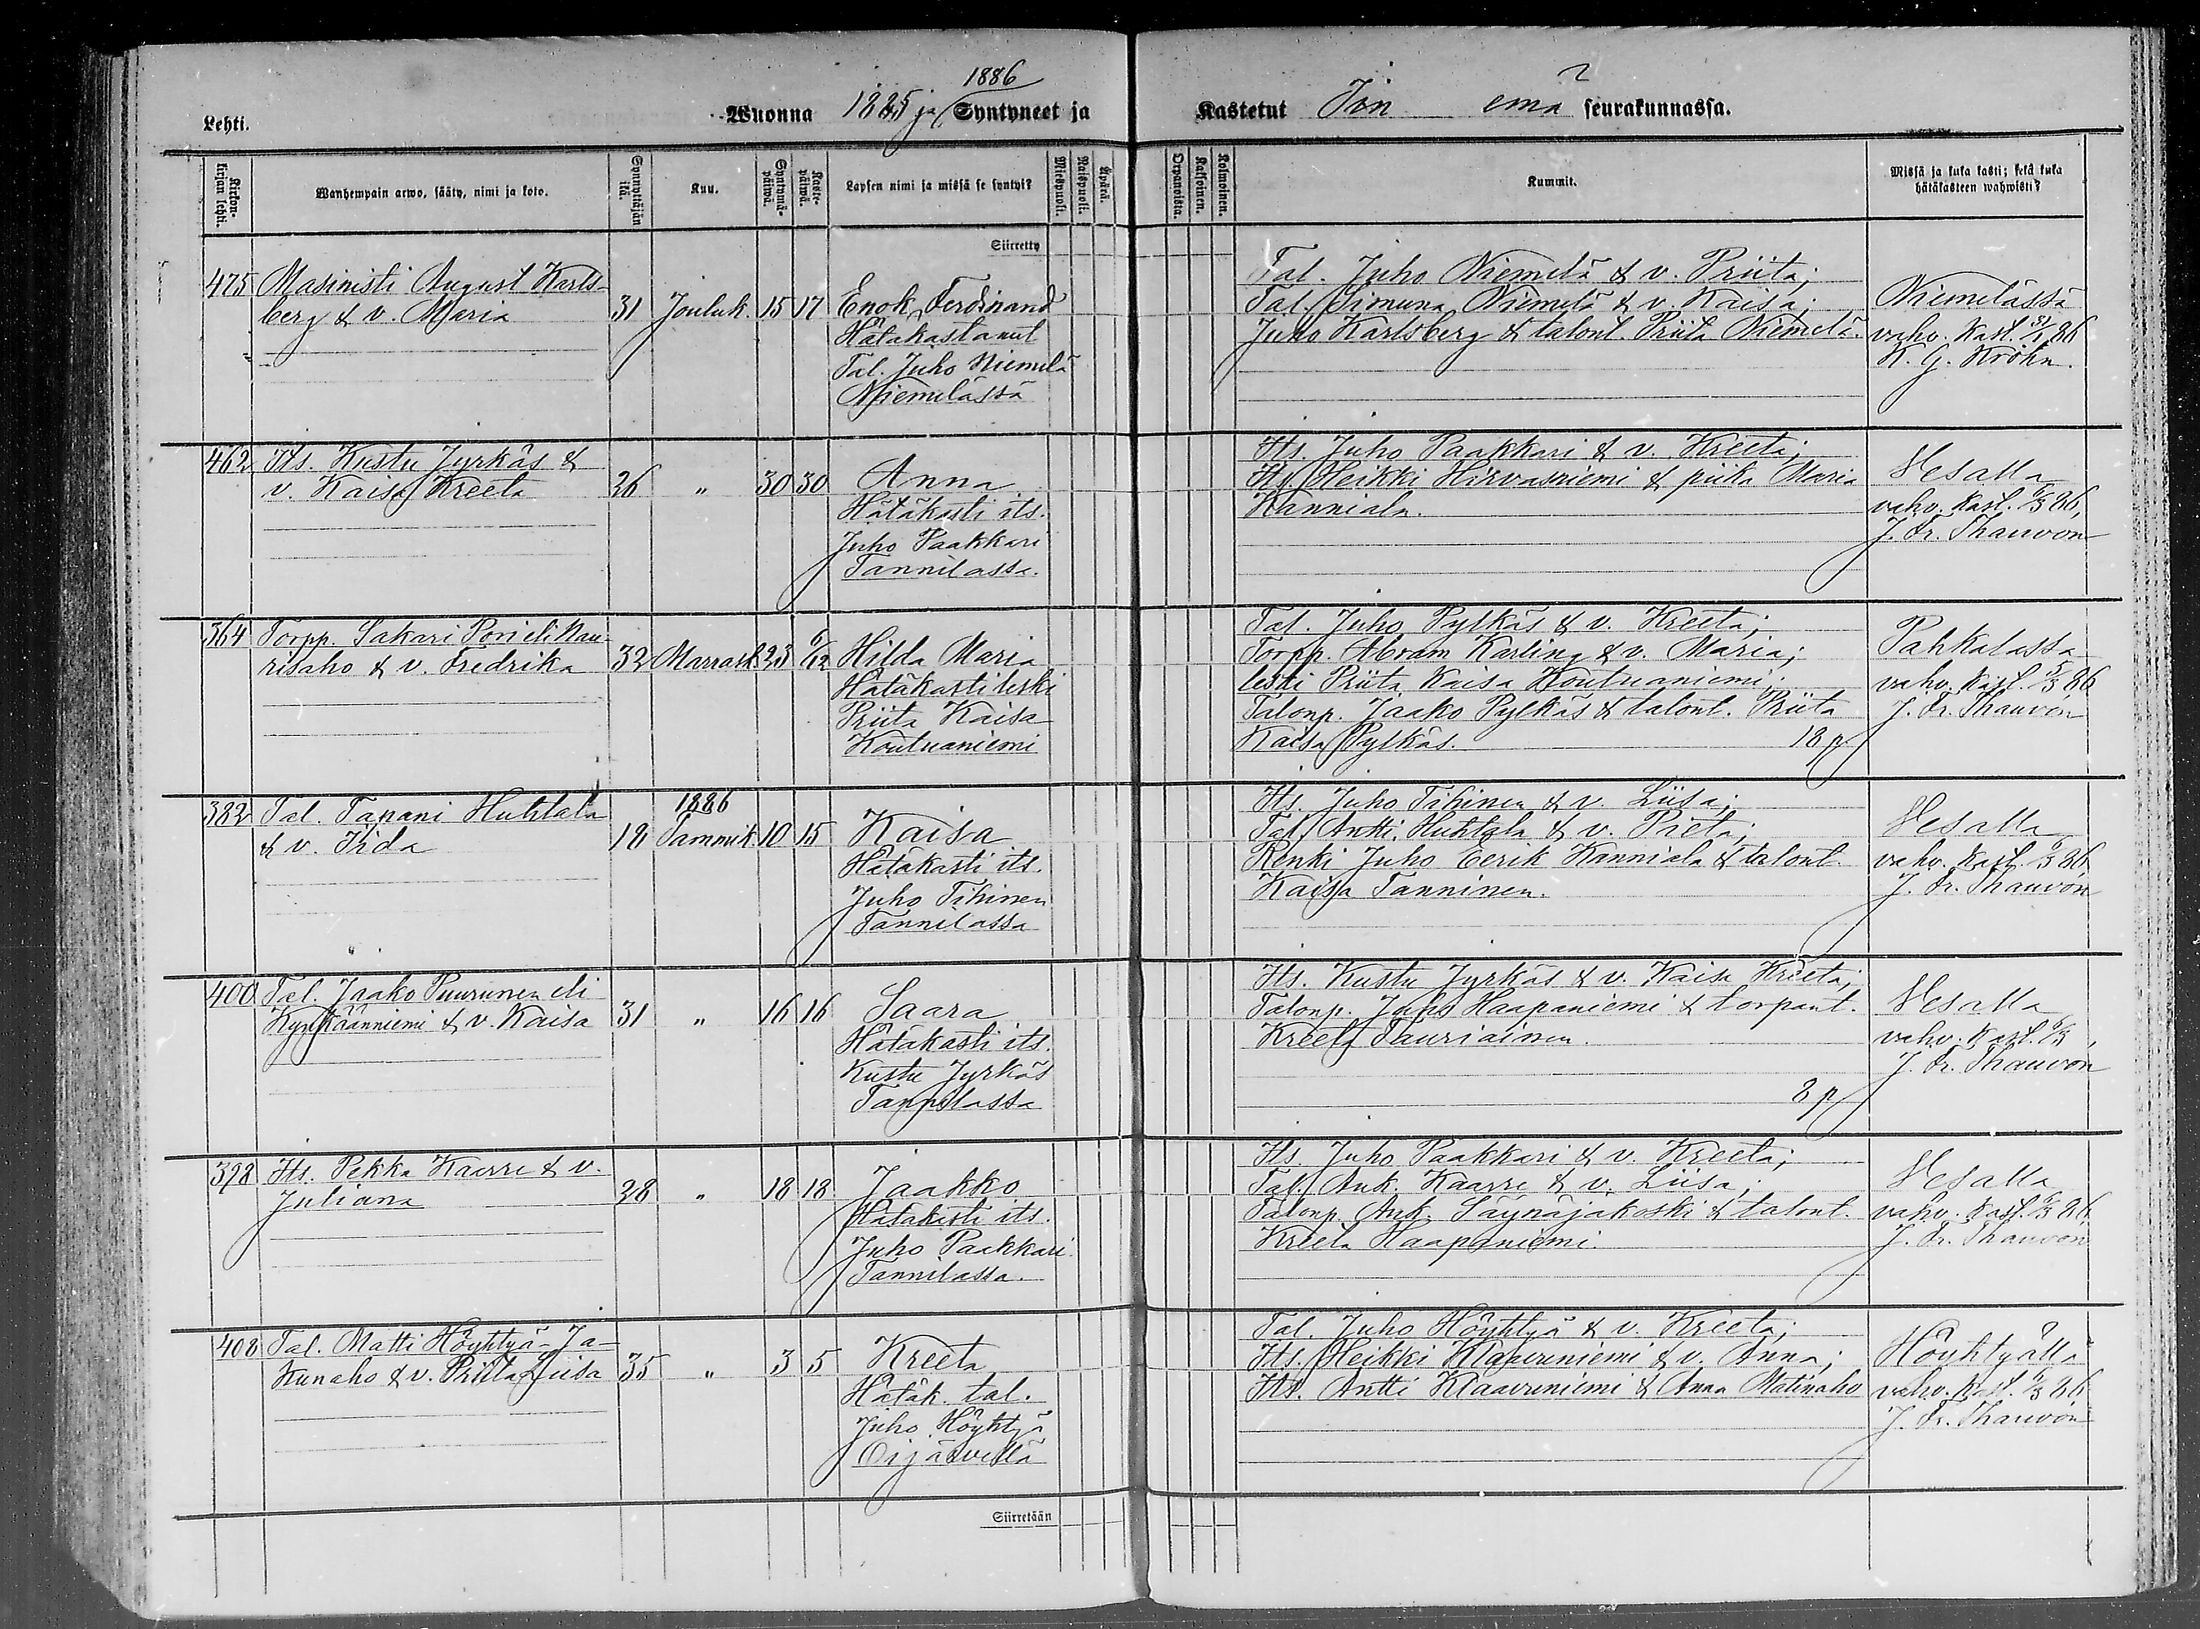 1886
Lehti.
Wuonna 1885 ja Syntyneet ja Kastetut Iin emä seurakunnassa.
Kirkonkirjan lehti.
Wanhempain arwo, sääty, nimi ja koto.
Synnyttäjän ikä.
Kuu.
Syntymäpäiwä.
Kastepäiwä.
Lapsen nimi ja missä se syntyi?
Miespuoli.
Naispuoli.
Äpärä.
Orpanoista.
Kaksoinen.
Kolmoinen.
Kummit.
Missä ja kuka kasti; sekä kuka
hätäkasteen wahwisti?
Siirretty
475 Masinisti August Karls-
berg & v. Maria 31 Jouluk. 15 17 Enok Ferdinand
Hätäkastanut
Tal. Juho Niemelä
Niemelässä
Tal. Juho Niemelä & v. Priita;
Tal. Simuna Niemelä & v. Kaisa;
Juho Karlsberg & talont. Priita Niemelä.
Niemelässä
vahv. kast. 31/1 86
K. G. Krohn.
462 Its. Kustu Jyrkäs &
v. Kaisa Kreeta 26 " 30 30 Anna
Hätäkasti its.
Juho Paakkari
Tannilassa.
Its. Juho Paakkari & v. Kreeta;
Its. Heikki Hirvasniemi & piika Maria
Kanniala.
Yesalla
vahv. kast. 6/3 86,
J. Fr. Thauvón
364 Torpp. Sakari Pori eli Nau-
risaho & v. Fredrika 32 Marrask. 23 6/12 Hilda Maria
Hätäkasti leski
Priita Kaisa
Koutuaniemi
Tal. Juho Pylkäs & v. Kreeta;
Torpp. Abram Karling & v. Maria;
leski Priita Kaisa Koutuaniemi;
Talonp. Jaako Pylkäs & talont. Priita
Kaisa Pylkäs. 18 p
Pahkalassa
vahv. kast. 5/3 86
J. Fr. Thauvón
382 Tal. Tapani Huhtala
& v. Iida 18 1886
Tammik. 10 15 Kaisa
Hätäkasti its.
Juho Tihinen
Tannilassa
Its. Juho Tihinen & v. Liisa;
Tal. Antti Huhtala & v. Prieta;
Renki Juho Eerik Kanniala & talont.
Kaisa Tanninen.
Yesalla
vahv. kast. 6/3 86
J. Fr. Thauvón
400 Tal. Jaako Puurunen eli
Kynkäänniemi & v. Kaisa 31 " 16 16 Saara
Hätäkasti its.
Kustu Jyrkäs
Tannilassa
Its. Kustu Jyrkäs & v. Kaisa Kreeta;
Talonp. Juho Haapaniemi & torpant.
Kreeta Tauriainen.
8 p
Yesalla
vahv. kast. 6/3,
J. Fr. Thauvón
398 Its. Pekka Kaarre & v.
Juliana 28 " 18 18 Jaakko
Hätäkasti its.
Juho Paakkari
Tannilassa.
Its. Juho Paakkari & v. Kreeta;
Tal. Ank. Kaarre & v. Liisa;
Talonp. Ank. Säynäjakoski & talont.
Kreeta Haapaniemi.
Yesalla
vahv. kast. 6/3 86,
J. Fr. Thauvón
408 Tal. Matti Höyhtyä-Ja-
kunaho & v. Priita Liisa 35 " 3 5 Kreeta
Hätäk. tal.
Juho Höyhtyä
Oijärvellä
Tal. Juho Höyhtyä & v. Kreeta;
Its. Heikki Klaavuniemi & v. Anna;
Its. Antti Klaavuniemi & Anna Matinaho
Höyhtyällä
vahv. kast. 9/3 86
J. Fr. Thauvón
Siirretään